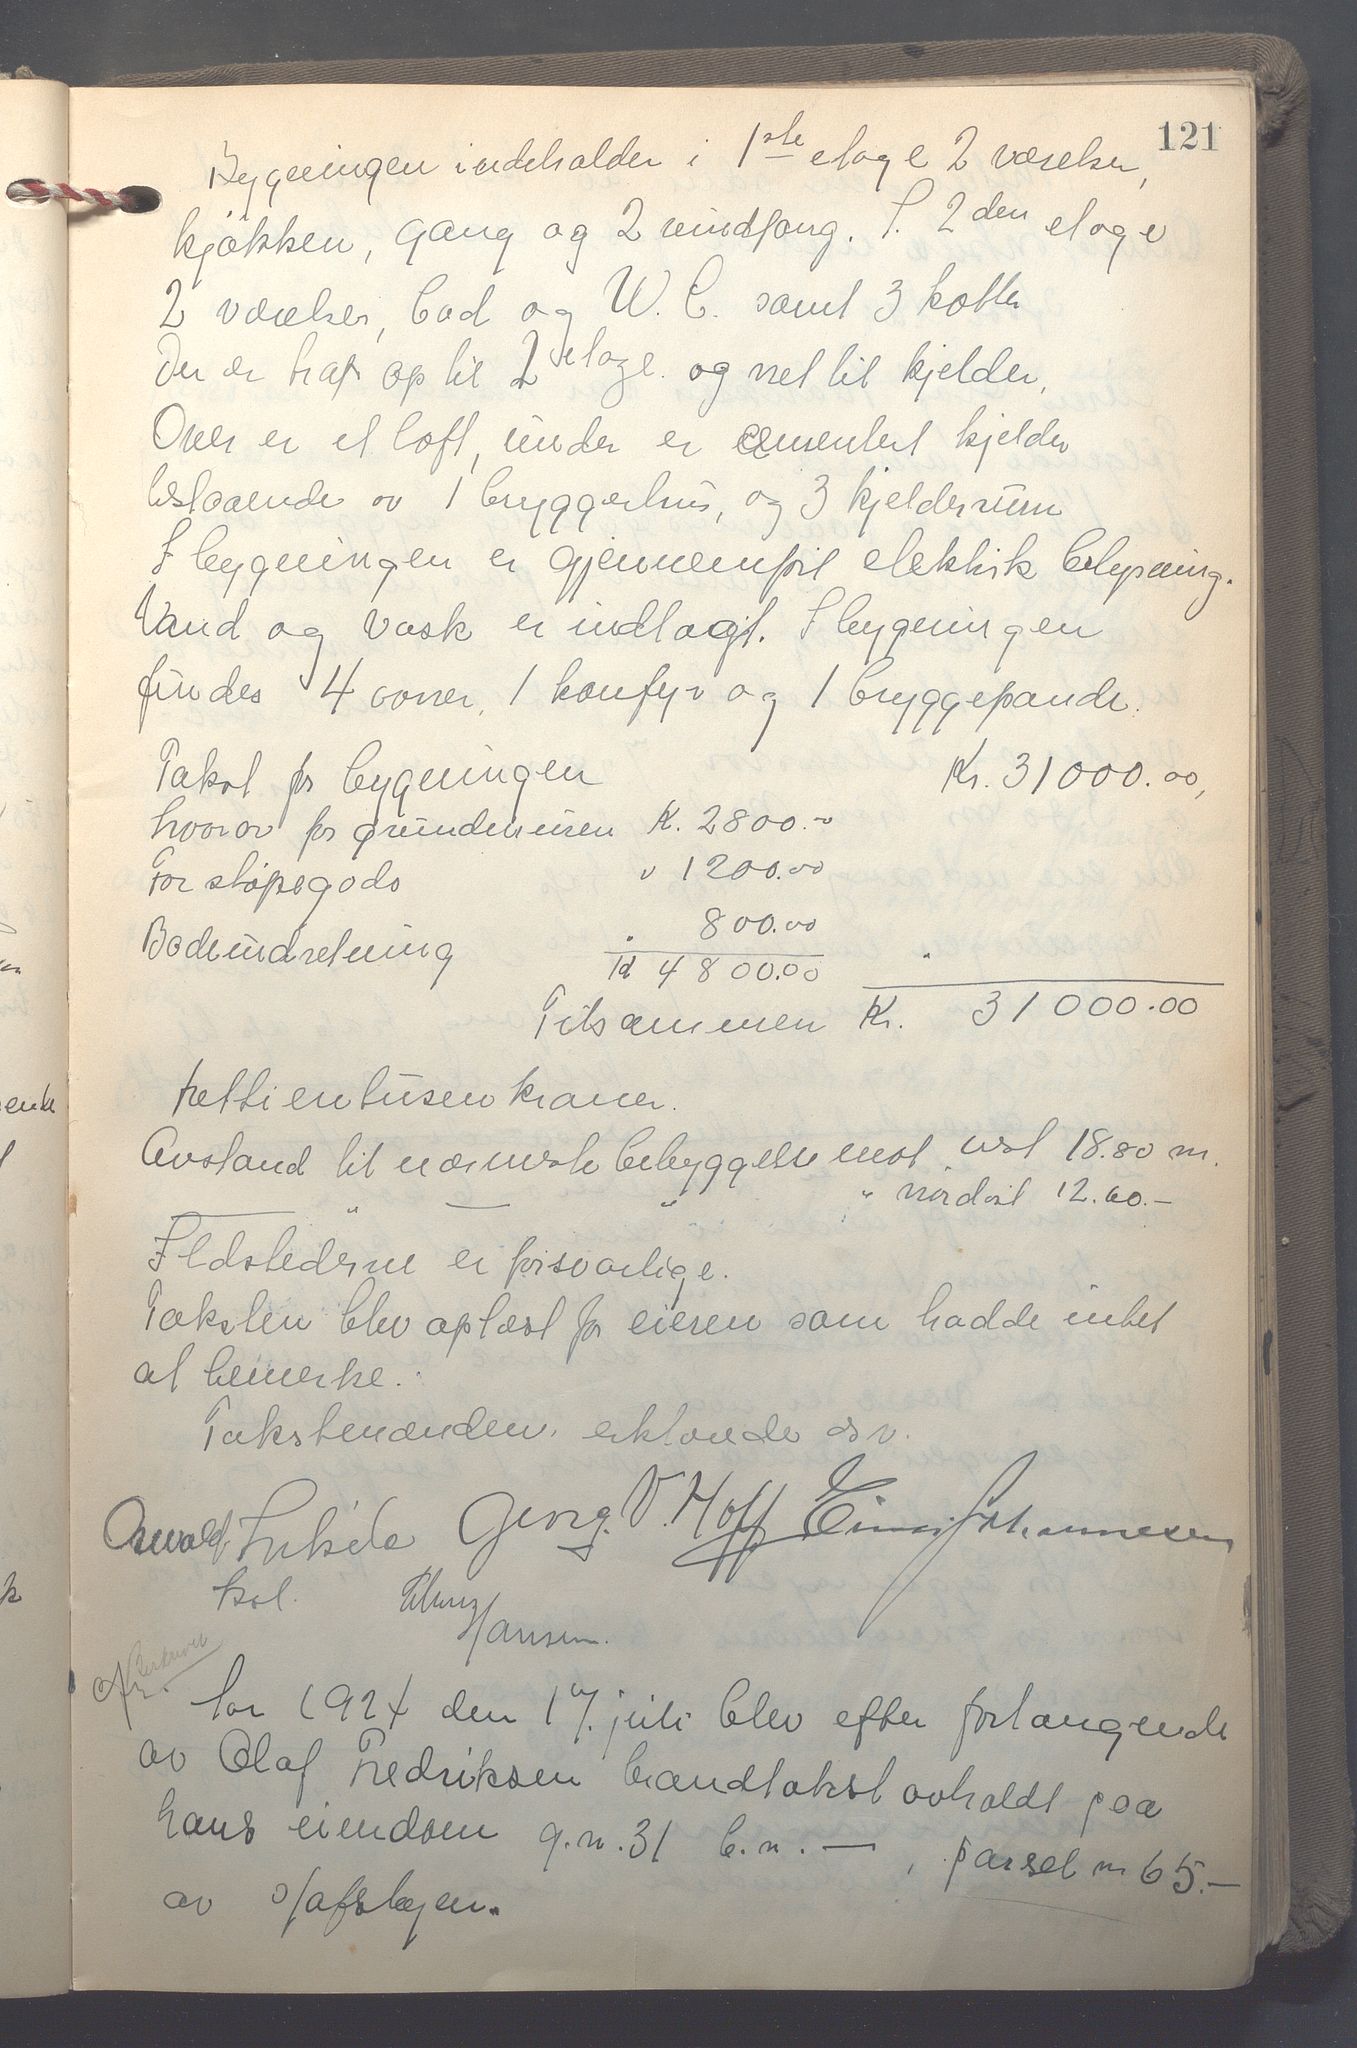 121
Bygningen indeholder i 1ste etage 2 værelser,
kjøkken, gang og 2 vindfang. I. 2den etage
2 værelser, bad og W.C. samt 3 kotter
Der er trap op til 2 etage. og ned til kjelder,
Over er et loft, under er cementert kjelder
bestaaende av 1 bryggerhus, og 3 kjelderrum
I bygningen er gjennemført elektrik belysning.
Vand og vask er indlagt. I bygningen
findes 4 ovner, 1 komfyr og 1 bryggepande.
Takst for bygningen Kr. 31000.00,
hvorav for grundmuren K. 2800.-
For støpegods " 1200.00
Badeindretning " 800.00 "
Kr 4800.00
Tilsammen Kr. 31000.00
trettientusen kroner.
Avstand til nærmeste bebyggelse mot vest 18.80 m.
" — " " nordøst 12.60.-
Ildstederne er forsvarlige.
Taksten blev oplæst for eieren som hadde intet
at bemerke.
Takstmænden erklærede osv.
Georg. V. Hoff Einar Johannesen
Hansen.
Aar 1924 den 17. juli blev efter forlangende
av Olaf Fredriksen brandtakst avholdt paa
hans eiendom g.n. 31 b.n. — , parsel nr 65.-
av